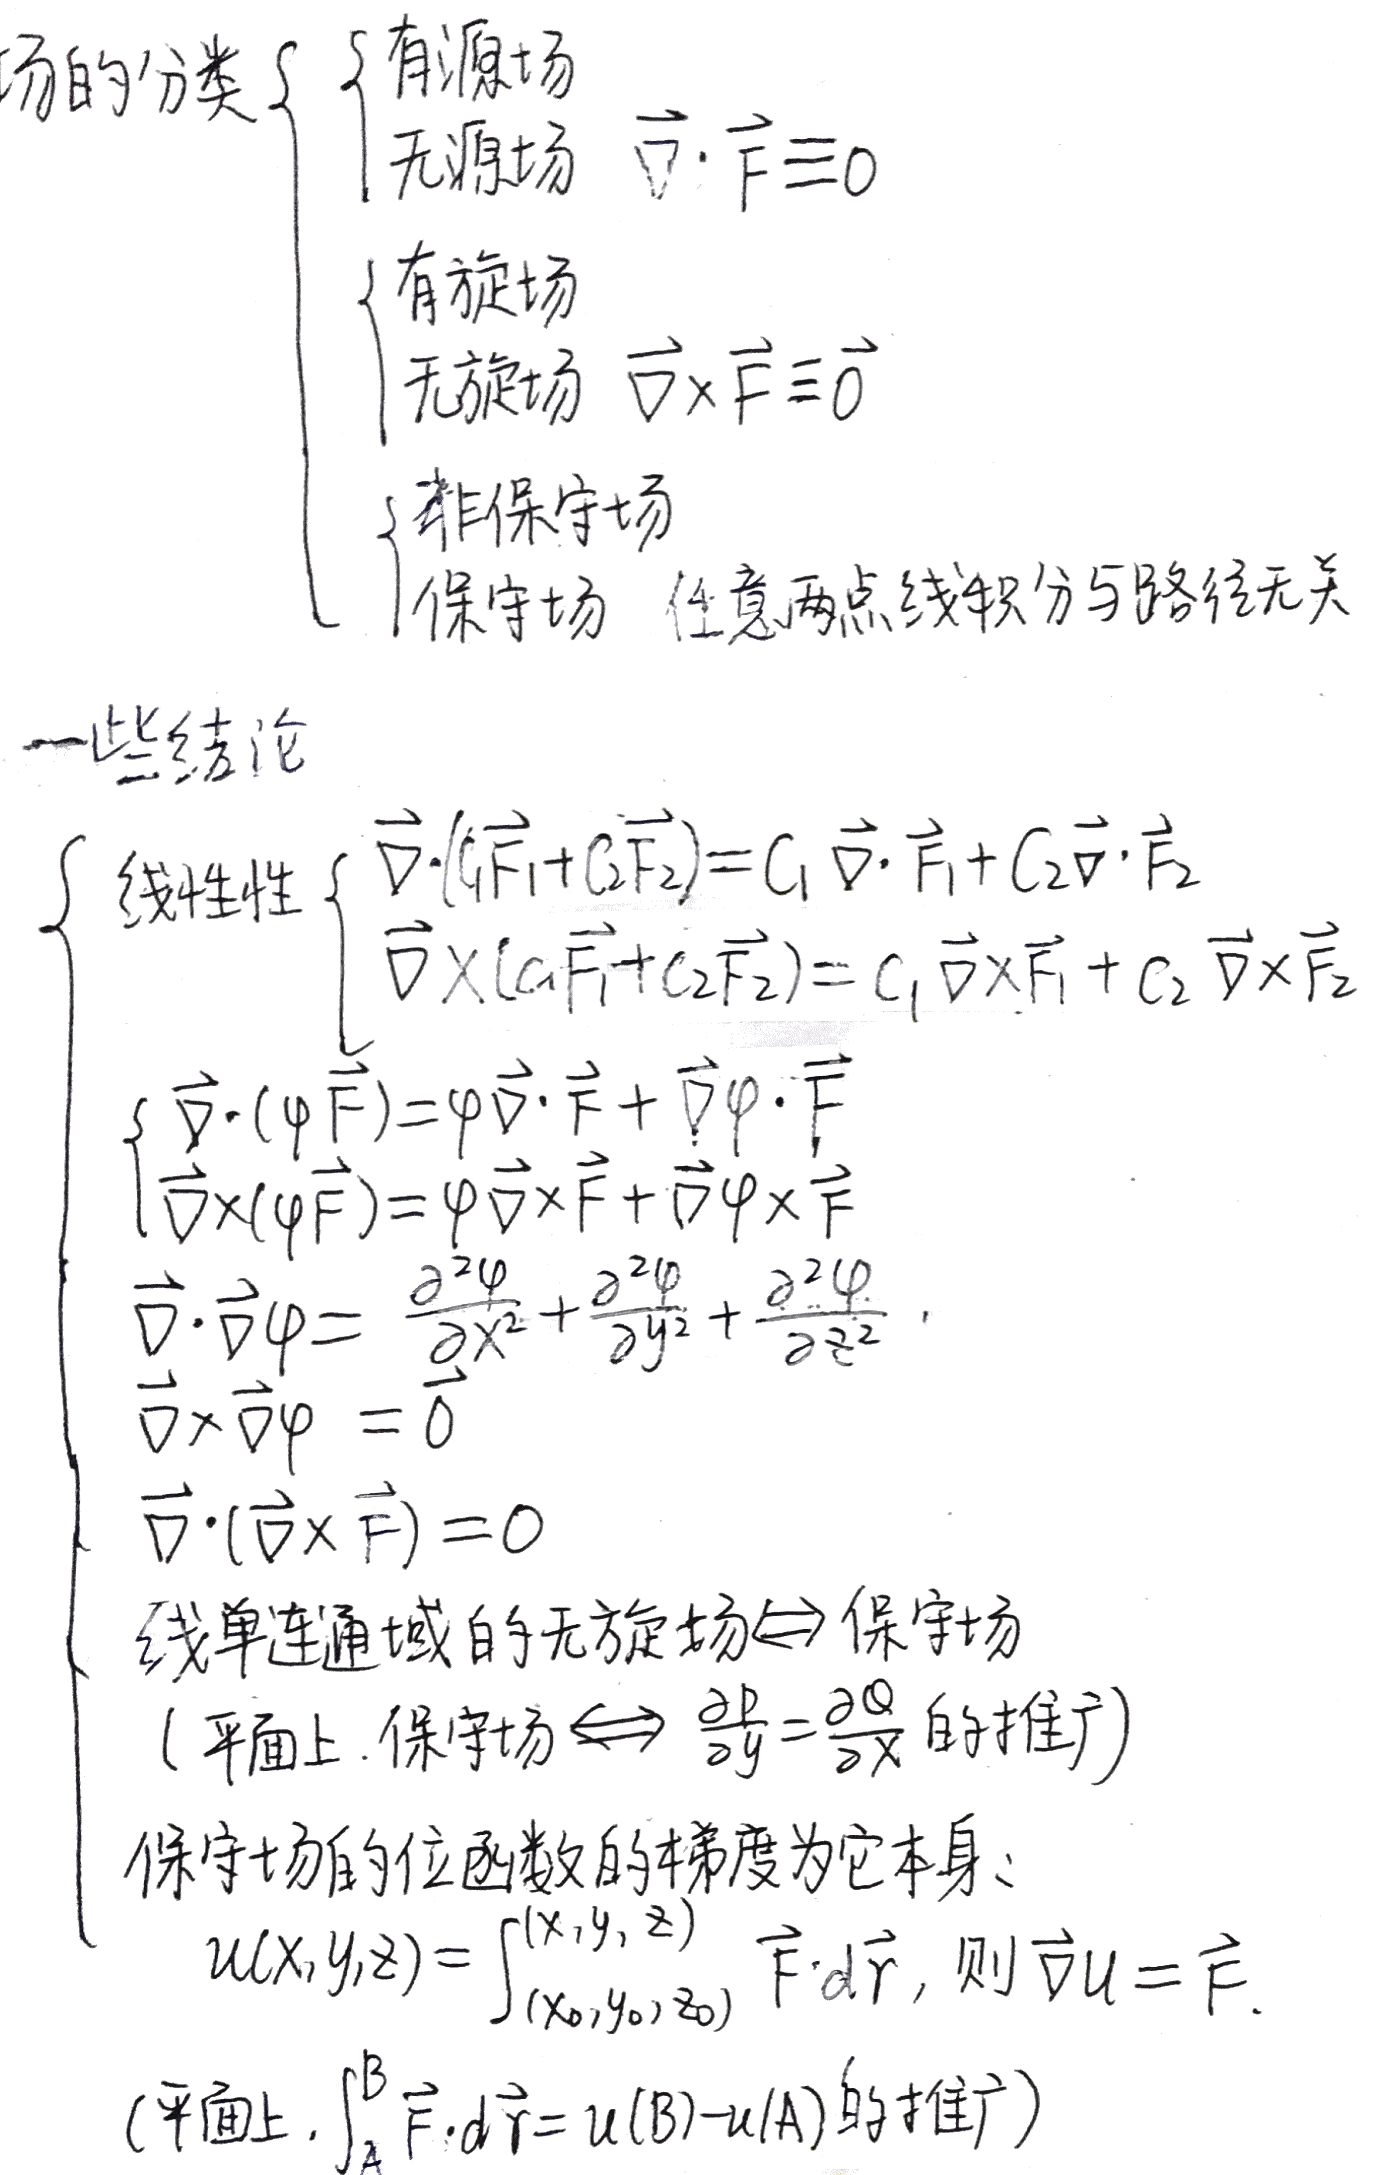 场的分类 { { 有源场
无源场 \vec{∇}·\vec{F}≡0
{ 有旋场
无旋场 \vec{∇}×\vec{F}≡\vec{0}
{ 非保守场
保守场 任意两点线积分与路径无关
一些结论
{ 线性性 { \vec{∇}·(C₁\vec{F}₁+C₂\vec{F}₂)=C₁\vec{∇}·\vec{F}₁+C₂\vec{∇}·\vec{F}₂
\vec{∇}×(C₁\vec{F}₁+C₂\vec{F}₂)=C₁\vec{∇}×\vec{F}₁+C₂\vec{∇}×\vec{F}₂
{ \vec{∇}·(φ\vec{F})=φ\vec{∇}·\vec{F}+\vec{∇}φ·\vec{F}
\vec{∇}×(φ\vec{F})=φ\vec{∇}×\vec{F}+\vec{∇}φ×\vec{F}
\vec{∇}·\vec{∇}φ=∂²φ/∂x²+∂²φ/∂y²+∂²φ/∂z²
\vec{∇}×\vec{∇}φ=\vec{0}
\vec{∇}·(\vec{∇}×\vec{F})=0
线单连通域的无旋场⇔保守场
(平面上.保守场⇔∂P/∂y=∂Q/∂x的推广)
保守场的位函数的梯度为它本身:
u(x,y,z)=∫_{(x₀,y₀,z₀)}^{(x,y,z)} \vec{F}·d\vec{r}, 则\vec{∇}u=\vec{F}.
(平面上.∫_A^B \vec{F}·d\vec{r}=u(B)-u(A)的推广)